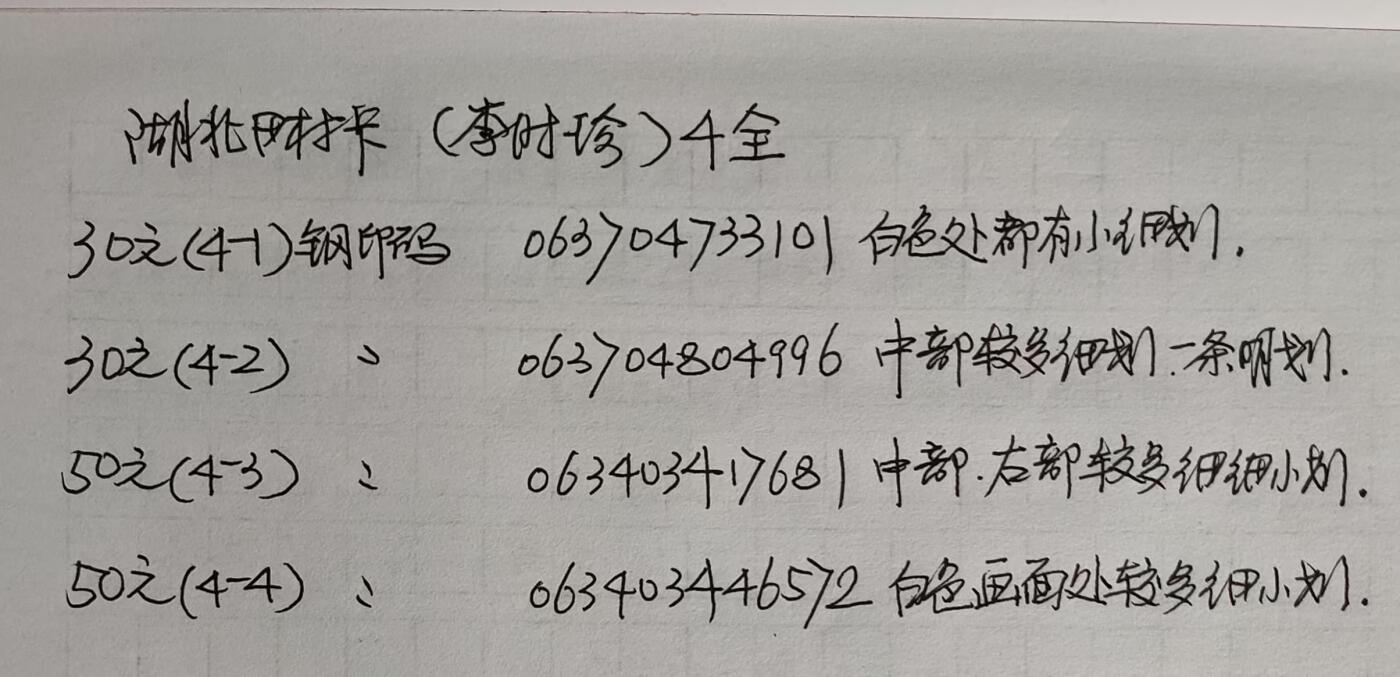 湖北田村卡（李时珍）4全
30元(4-1)钢印码 063704733101 白色处都有小细划.
30元(4-2) 〃 063704804996 中部较多细划.一条明划.
50元(4-3) 〃 063403417681 中部.右部较多细细小划.
50元(4-4) 〃 063403446572 白色画面处较多细小划.